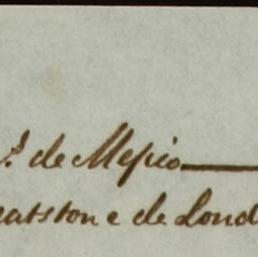 de Mexico
eatstone de Lond